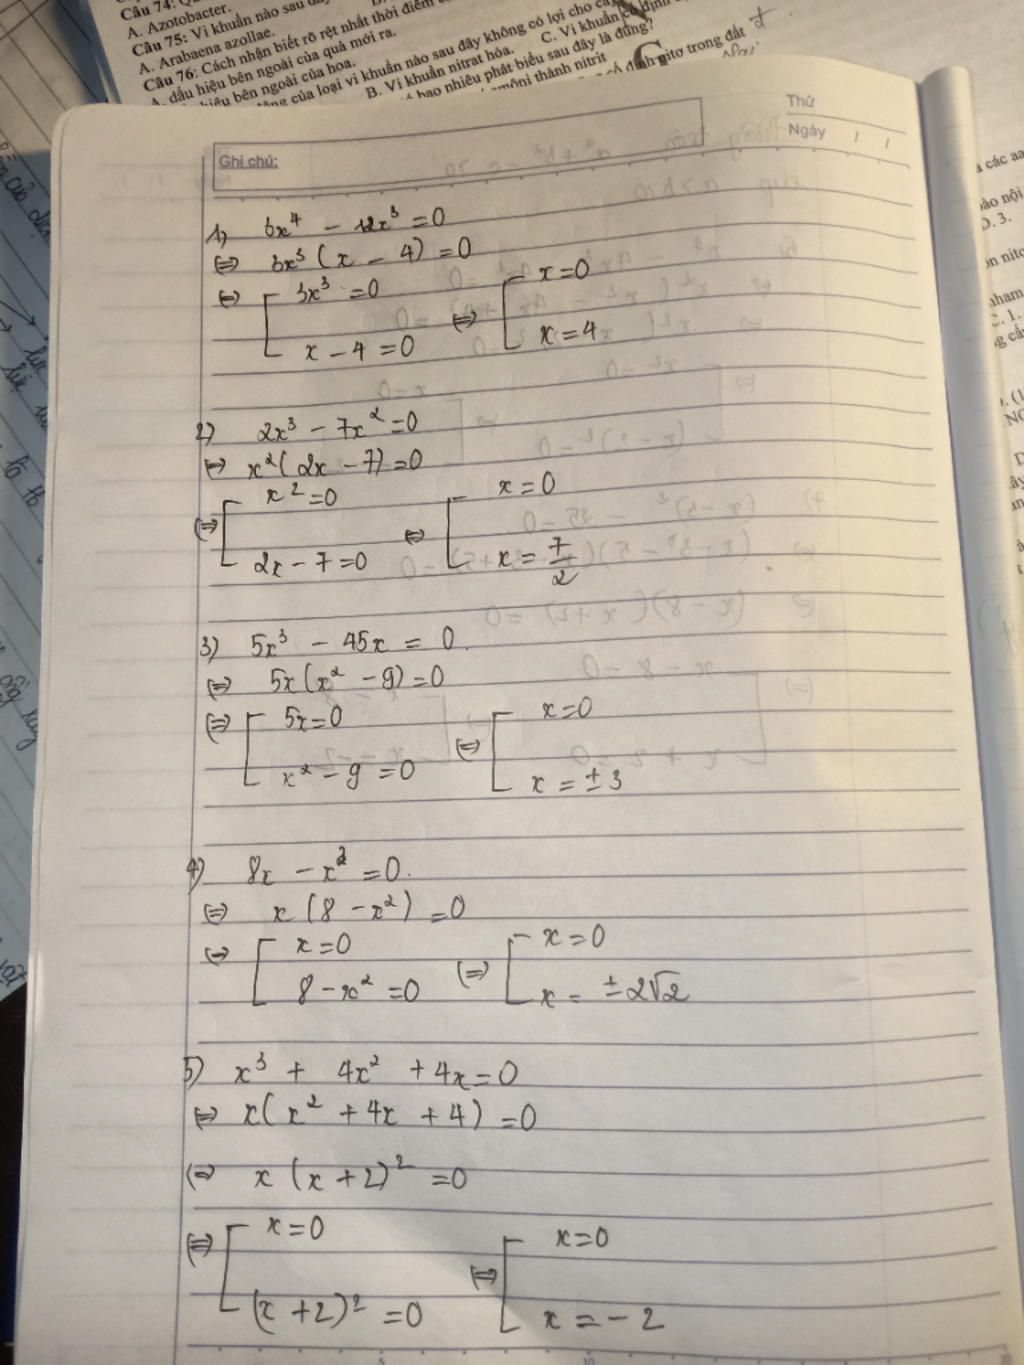 Câu 74:
A. Azotobacter.
Câu 75: Vi khuẩn nào sau đây
A. Arabaena azollae.
Câu 76: Cách nhận biết rõ rệt nhất thời điểm
A. dấu hiệu bên ngoài của quả mới ra.
hiệu bên ngoài của hoa.
của loại vi khuẩn nào sau đây không có lợi cho
B. Vi khuẩn nitrat hóa. C. Vi khuẩn cố định
bao nhiêu phát biểu sau đây là đúng?
amôni thành nitrit
cố định nitơ trong đất
Thứ
Ngày / /
Ghi chú:
1) 3x⁴ - 12x³ = 0
⇔ 3x³ (x - 4) = 0
⇔ [ 3x³ = 0 ⇔ [ x = 0
x - 4 = 0 x = 4
2) 2x³ - 7x² = 0
⇔ x² (2x - 7) = 0
⇔ [ x² = 0 ⇔ [ x = 0
2x - 7 = 0 x = 7/2
3) 5x³ - 45x = 0.
⇔ 5x (x² - 9) = 0
⇔ [ 5x = 0 ⇔ [ x = 0
x² - 9 = 0 x = ± 3
4) 8x - x³ = 0.
⇔ x (8 - x²) = 0
⇔ [ x = 0 ⇔ [ x = 0
8 - x² = 0 x = ± 2√2
5) x³ + 4x² + 4x = 0
⇔ x (x² + 4x + 4) = 0
⇔ x (x + 2)² = 0
⇔ [ x = 0 ⇔ [ x = 0
(x + 2)² = 0 x = - 2
5 10